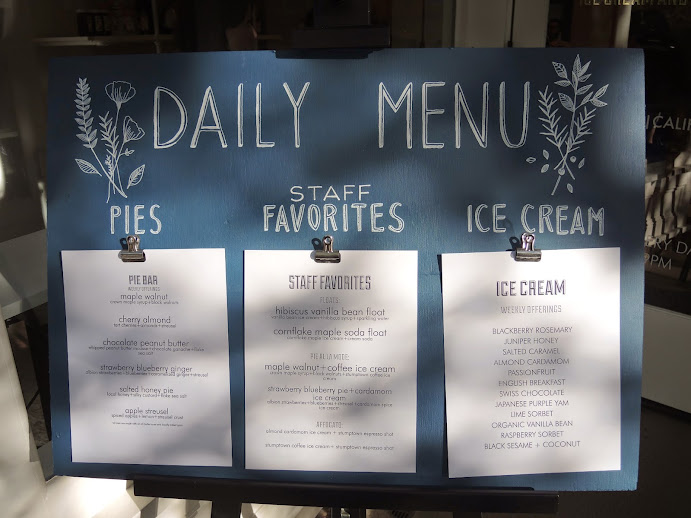 ICE CREAM AND
DAILY MENU
PIES
STAFF
FAVORITES
ICE CREAM
PIE BAR
WEEKLY OFFERINGS
maple walnut
cherry almond
chocolate peanut butter
strawberry blueberry ginger
salted honey pie
apple streusel
STAFF FAVORITES
FLOATS:
hibiscus vanilla bean float
cornflake maple soda float
PIE ALA MODE:
maple walnut + coffee ice cream
strawberry blueberry pie + cardamom
ice cream
AFFOGATO:
almond cardamom ice cream + stumptown espresso shot
stumptown coffee ice cream + stumptown espresso shot
ICE CREAM
WEEKLY OFFERINGS
BLACKBERRY ROSEMARY
JUNIPER HONEY
SALTED CARAMEL
ALMOND CARDAMOM
PASSIONFRUIT
ENGLISH BREAKFAST
SWISS CHOCOLATE
JAPANESE PURPLE YAM
LIME SORBET
ORGANIC VANILLA BEAN
RASPBERRY SORBET
BLACK SESAME + COCONUT
CALIF
RY DA
PM